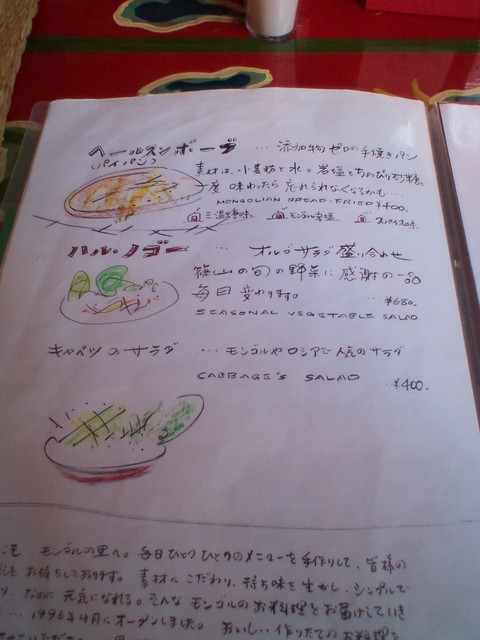 ヘールズンボーブ … 添加物ゼロの手焼きパン
(パイパン)
素材は、小麦粉と水。岩塩とちょっぴりお砂糖。
一度味わったら忘れられなくなるかも…
MONGOLIAN BREAD・FRIED ¥400.
三温糖味。 モンゴル岩塩 スパイス味
ハル・ノゴー … オルゴサラダ盛り合わせ
篠山の旬の野菜に感謝の一品
毎日変わります。 …¥680.
SEASONAL VEGETABLE SALAD
キャベツのサラダ …モンゴルやロシアで人気のサラダ
CABBAGE'S SALAD ¥400.
モンゴルの里へ。毎日ひとつひとつのメニューを手作りして、皆様の
お待ちしております。素材にこだわり、持ち味を生かし、シンプルで
元気になれる。そんなモンゴルのお料理をお届けしていき
… 1996年4月にオープンしました。おいしい作りたてのお料理を